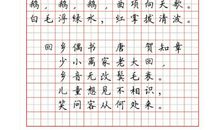 鹅,鹅,鹅,曲项向天歌。
白毛浮绿水,红掌拨清波。
回乡偶书 唐 贺知章
少小离家老大回,
乡音无改鬓毛衰。
儿童相见不相识,
笑问客从何处来。